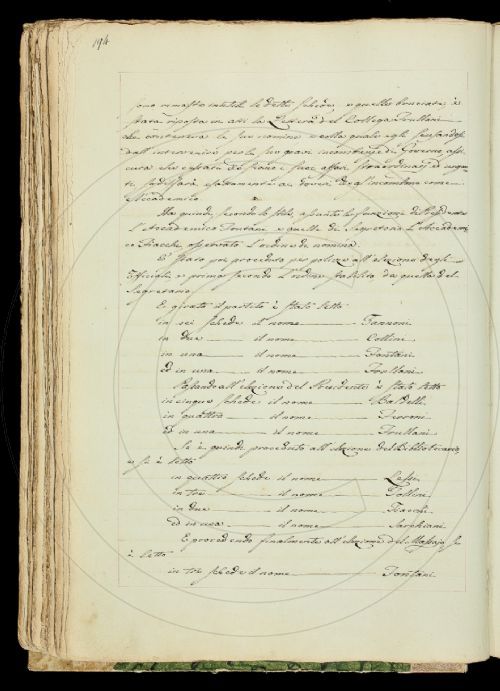 194
sono rimaste inutili le dette schede, e quelle bruciate, è
stata riposta in atti la Lettera del Collega Frullani
che conteneva la sua nomina e colla quale egli scusandosi
dall'intervenire per le sue gravi incombenze di Governo assi
cura che cessata la straordinari di urgen
ti sodisfarà esattamente ai doveri che gl'incombono come
Accademico
Ha quindi secondo lo stile, assunto le funzioni di Presidente
l'Accademico Fontani e quelle di Segretario l'Accademi
co Fiacchi osservato l'ordine di nomina.
È stato poi proceduto per polizze all'elezione degli
Ufficiali, e primo secondo l'ordine stabilito da quella del
Segretario
E girato il partito è stato letto
in sei schede il nome Zannoni
in due il nome Collini
in una il nome Fontani
ed in una il nome Frullani
Passando all'elezione del Presidente è stato letto
in cinque schede il nome Baldelli
in quattro il nome Ferroni
ed in una il nome Frullani
Si è quindi proceduto all'elezione del Bibliotecario
e si è letto
in quattro schede il nome Lessi
in tre il nome Collini
in due il nome Fiacchi
ed in una il nome Sarchiani
E procedendo finalmente all'elezione del Massajo si
è letto
in tre schede il nome Fontani